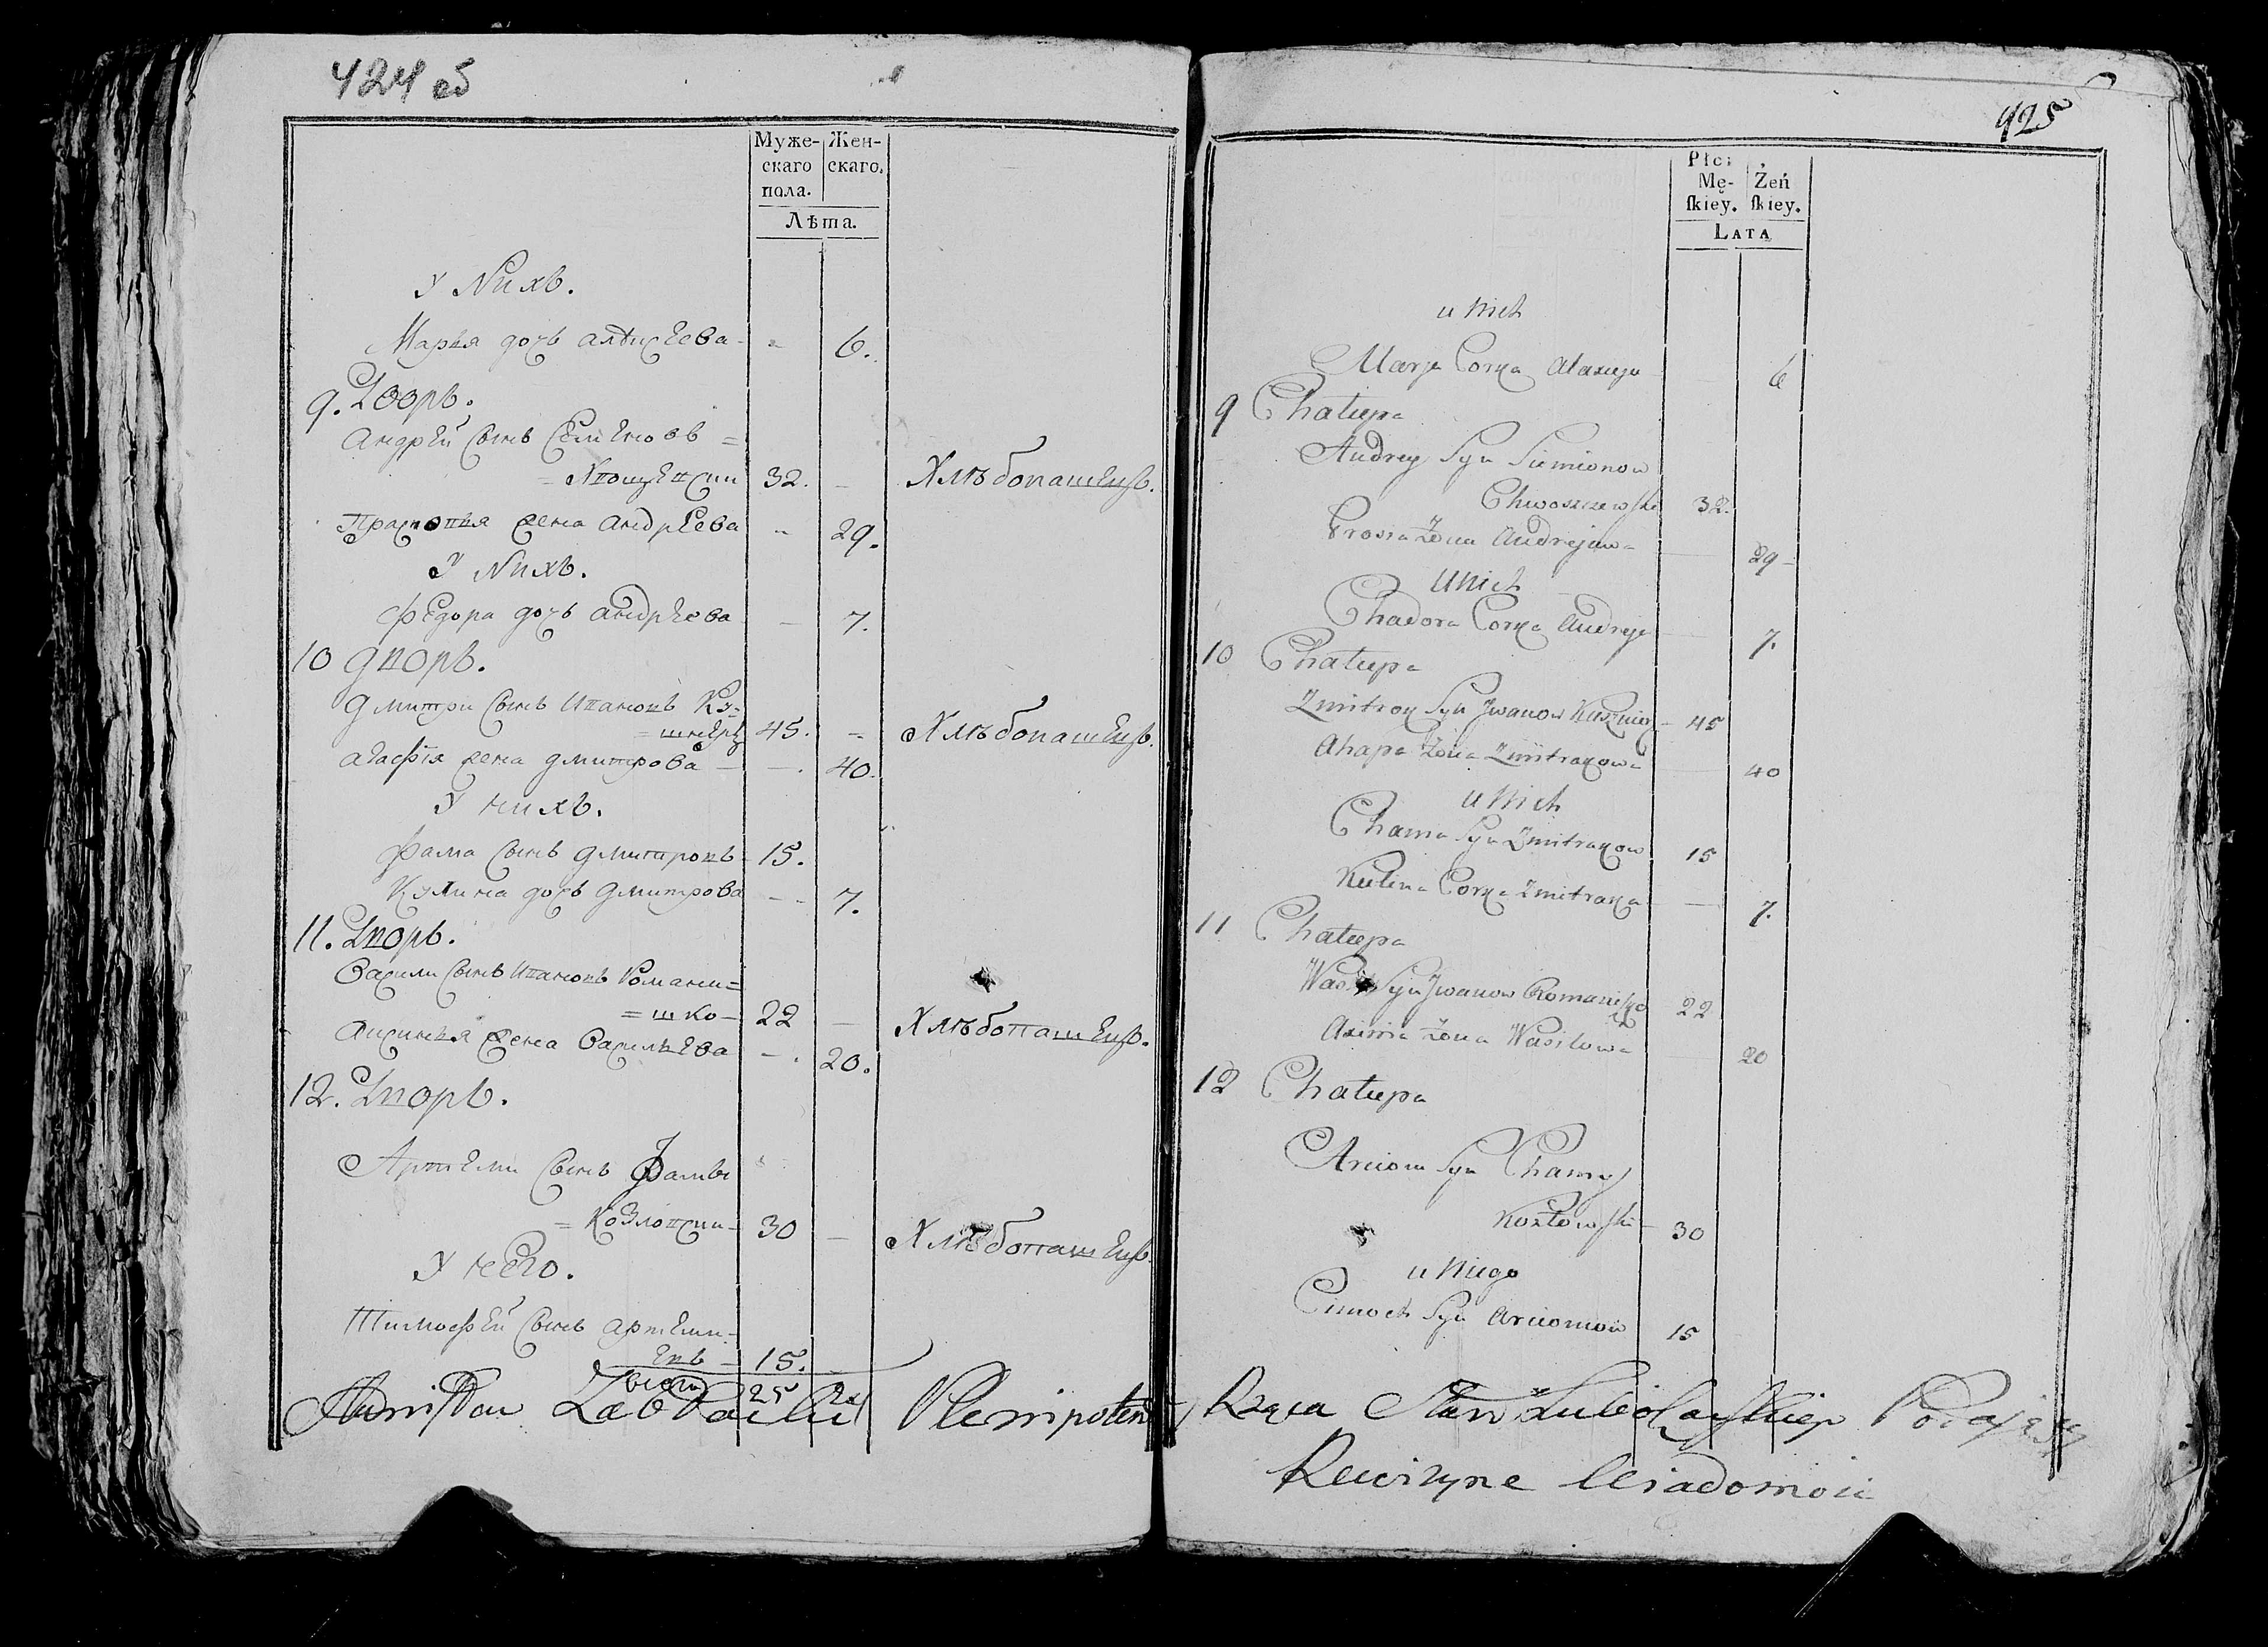 424 об
Муже-
скаго
пола.
Жен-
скаго.
Лѣта.
У Нихъ.
Марья дочь Алексеева - - 6.
9. Дворъ.
Андрей сынъ Семеновъ =
32. - Хлѣбопашецъ.
жена Андреева - 29.
У Нихъ.
Федора дочь Андреева - 7.
10 Дворъ.
Дмитри сынъ Ивановъ Ку=
=шнеръ 45. - Хлѣбопашецъ.
Агафія жена Дмитрова - 40.
У нихъ.
Фама сынъ Дмитровъ 15.
Кулина дочь Дмитрова - - 7.
11. Дворъ.
Васили сынъ Ивановъ Романи=
=шко - 22 - Хлѣбопашецъ.
Аксинья жена Васильева - 20.
12. Дворъ.
Артеми сынъ Фамы
= Козловски - 30 - Хлѣбопашецъ.
У него.
Тимофей сынъ Артеми-
евъ - 15.
25
Plenipotent
425
Płci
Mę-
skiey.
Żeń
skiey.
LATA
u Nich
Marja Corka Alaxieja 6
9 Chałupa
Andrey Syn Siemionow
Chwoszczewski 32.
Prosia Żona Andrejowa 29
u Nich
Chadora Corka Andreja 7.
10 Chałupa
Zmitrok Syn Jwanow Kusznier - 45
Ahapa Żona Zmitrakowa 40
u Nich
Chama Syn Zmitrakow 15
Kulina Corka Zmitraka 7.
11 Chałupa
Wasil Syn Jwanow Romaniszko 22
Axinia Żona Wasilowa 20
12 Chałupa
Arciom Syn Chamy
Kozłowski - 30
u Niego
Cimoch Syn Arciomow 15
Rewizyine Wiadomosci